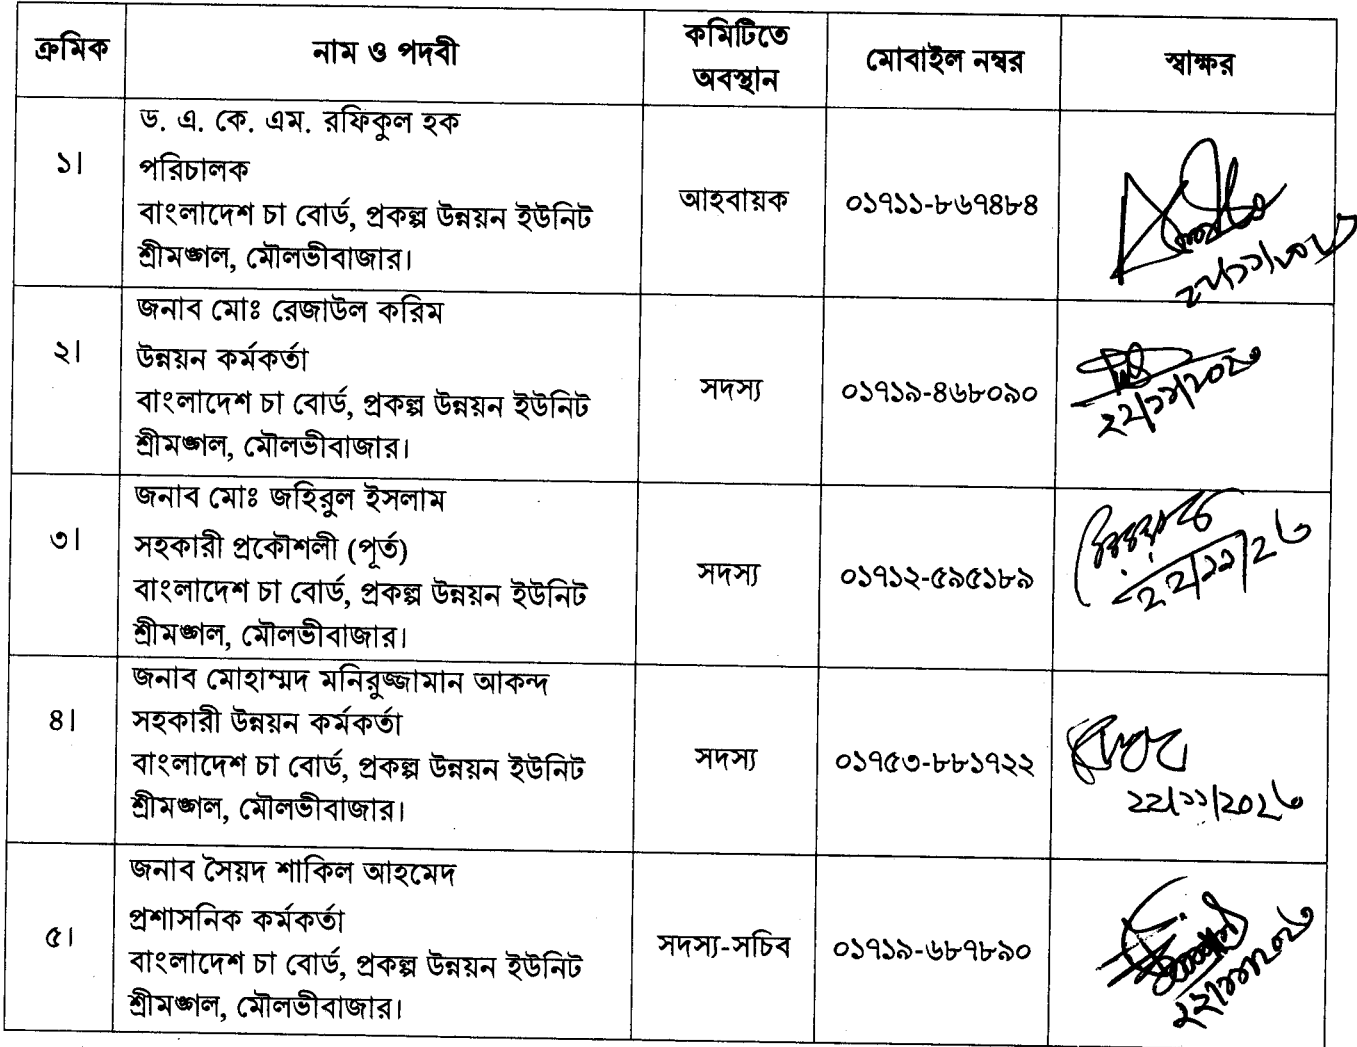 ক্রমিক নাম ও পদবী কমিটিতে অবস্থান মোবাইল নম্বর স্বাক্ষর
১। ড. এ. কে. এম. রফিকুল হক
পরিচালক
বাংলাদেশ চা বোর্ড, প্রকল্প উন্নয়ন ইউনিট
শ্রীমঙ্গল, মৌলভীবাজার।
আহবায়ক ০১৭১১-৮৬৭৪৮৪
২২/১১/২০২৩
২। জনাব মোঃ রেজাউল করিম
উন্নয়ন কর্মকর্তা
বাংলাদেশ চা বোর্ড, প্রকল্প উন্নয়ন ইউনিট
শ্রীমঙ্গল, মৌলভীবাজার।
সদস্য ০১৭১৯-৪৬৮০৯০
২২/১১/২০২৩
৩। জনাব মোঃ জহিরুল ইসলাম
সহকারী প্রকৌশলী (পূর্ত)
বাংলাদেশ চা বোর্ড, প্রকল্প উন্নয়ন ইউনিট
শ্রীমঙ্গল, মৌলভীবাজার।
সদস্য ০১৭১২-৫৯৫১৮৯
২২/১১/২৩
৪। জনাব মোহাম্মদ মনিরুজ্জামান আকন্দ
সহকারী উন্নয়ন কর্মকর্তা
বাংলাদেশ চা বোর্ড, প্রকল্প উন্নয়ন ইউনিট
শ্রীমঙ্গল, মৌলভীবাজার।
সদস্য ০১৭৫৩-৮৮১৭২২
২২/১১/২০২৩
৫। জনাব সৈয়দ শাকিল আহমেদ
প্রশাসনিক কর্মকর্তা
বাংলাদেশ চা বোর্ড, প্রকল্প উন্নয়ন ইউনিট
শ্রীমঙ্গল, মৌলভীবাজার।
সদস্য-সচিব ০১৭১৯-৬৮৭৮৯০
২২/১১/২০২৩